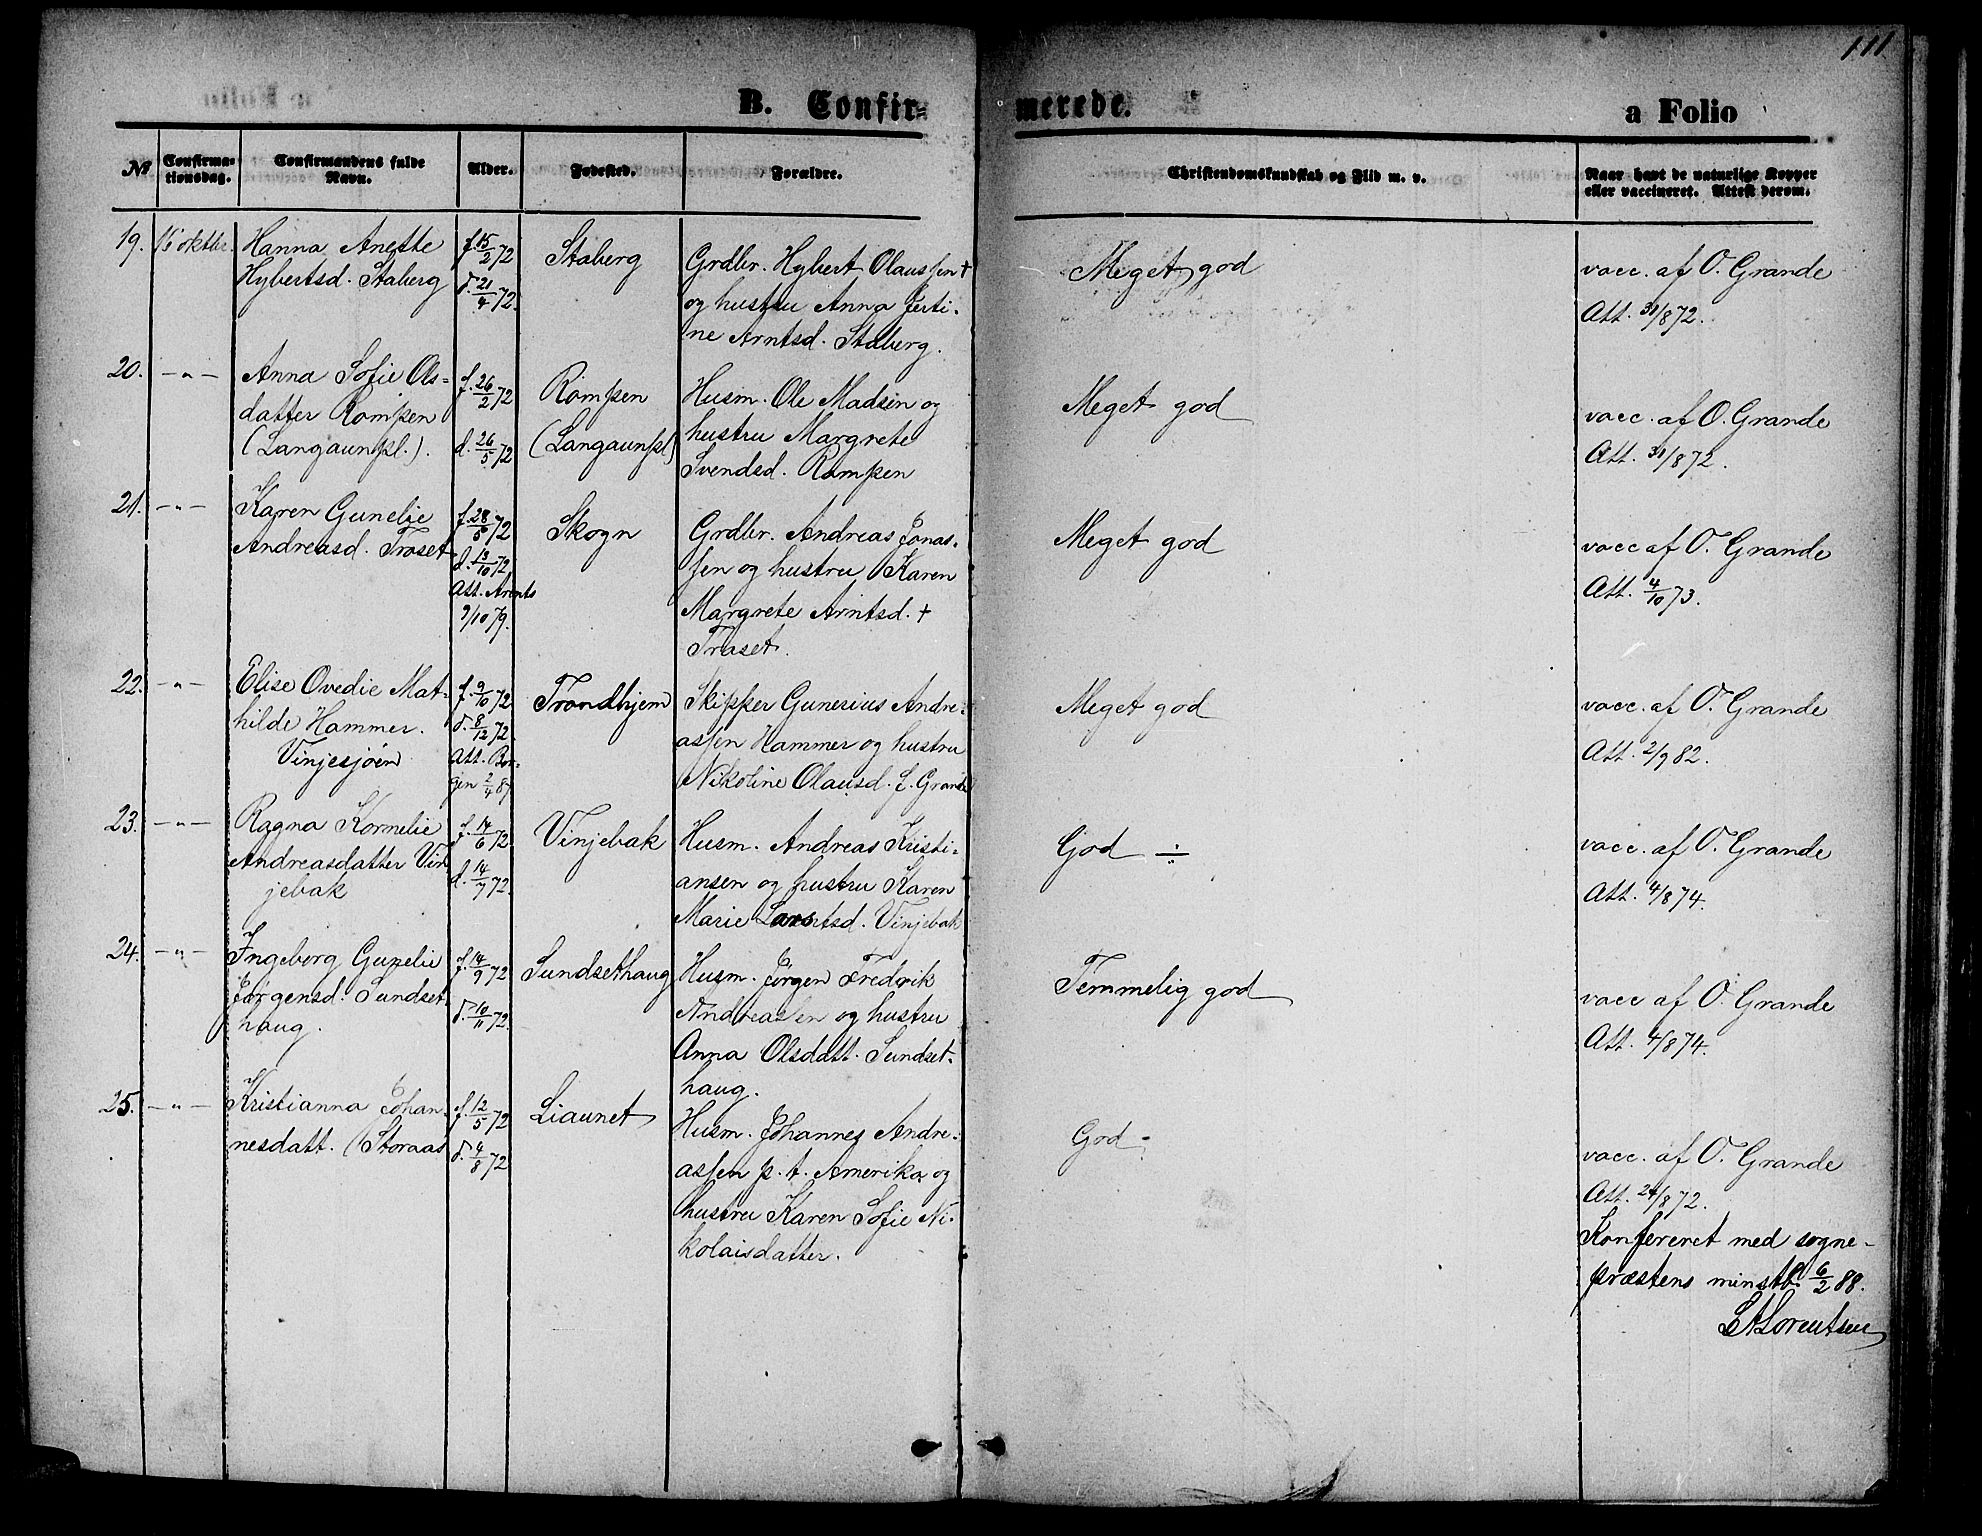 111.
B. Confirmerede. a Folio
No
Confirmationsdag.
Confirmandens fulde Navn.
Alder.
Fødested.
Forældre.
Christendomskundskab og Flid m. v.
Naar havt de naturlige Kopper eller vaccineret. Attest derom.
19. 16 oktbr.
Hanna Anette
Hybertsd. Staberg
f. 15/2 72
d. 21/4 72.
Staberg
Grdbr. Hybert Olaussen +
og hustru Anna Jerti-
ne Arntsd. Staberg.
Meget god
vacc. af O. Grande
Att. 31/8 72.
20. — " —
Anna Sofie Ols-
datter Romsen
(Langaunpl.).
f. 26/2 72
d. 26/5 72
Romsen
(Langaunpl)
Husm. Ole Madsen og
hustru Margrete
Svendsd. Romsen
Meget god
vacc. af O. Grande
Att. 31/8 72.
21. — " —
Karen Gunelie
Andreasd. Traset
f. 28/5 72
d. 13/10 72.
Att. Arents
9/10 79.
Skogn
Grdbr. Andreas Jonas-
sen og hustru Karen
Margrete Arntsd. +
Traset.
Meget god
vacc af O. Grande
Att. 4/10 73.
22. — " —
Elise Ovedie Mat-
hilde Hammer.
Vinjesjøen
f. 9/10 72
d. 8/12 72.
Att. Bor-
gen 2/4 87
Trondhjem
Skipper Gunerius Andre-
assen Hammer og hustru
Nikoline Olausd. f. Grande
Meget god
vacc. af O. Grande
Att. 2/9 82.
23. — " —
Ragna Kornelie
Andreasdatter Vin-
jebak
f. 14/6 72.
d. 14/7 72.
Vinjebak
Husm. Andreas Kristi-
ansen og hustru Karen
Marie Vinjebak
God ÷
vacc. af O. Grande
Att. 4/8 74.
24. — " —
Ingeborg Gunelie
Jørgensd. Sundset-
haug.
f. 14/9 72
d. 10/11 72.
Sundsethaug
Husm. Jørgen Fredrik
Andreassen og hustru
Anna Olsdatt. Sundset-
haug.
Temmelig god
vacc af O. Grande
Att. 4/8 74.
25. — " —
Kristianna Johan-
nesdatt. (Storaas
f. 12/5 72
d. 4/8 72
Liaunet
Husm. Johannes Andre-
assen p. t. Amerika og
hustru Karen Sofie Ni-
kolaisdatter.
God -
vacc. af O. Grande
Att. 24/8 72.
Konfereret med sogne-
præstens minstb. 6/2 88.
Lorentsen